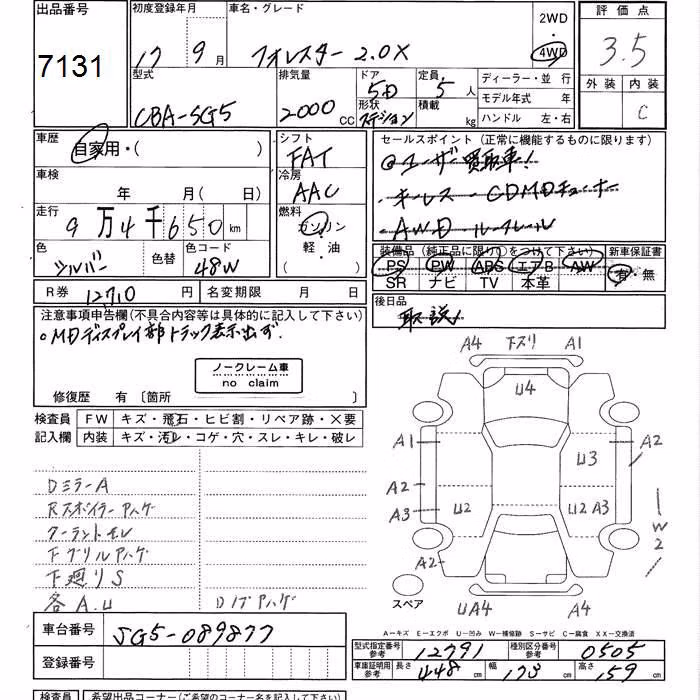 出品番号 初度登録年月 車名・グレード 2WD 評価点
7131 17 9月 フォレスター 2.0X 4WD 3.5
型式 排気量 ドア 定員 ディーラー・並行 外装 内装
CBA-SG5 2000CC 5D 5人 モデル年式 年 C
形状 ステーション 積載 kg ハンドル 左・右
車歴 自家用・( ) シフト FAT セールスポイント (正常に機能するものに限ります)
車検 年 月( 日) 冷房 AAC ユーザー買取車!
キーレス CDMDチューナー
走行 9万4千650km 燃料 ガソリン・軽・油 AWD ルーフレール
色 シルバー 色替 色コード 48W
装備品(純正品に限り○をつけて下さい) 新車保証書
PS PW ABS エアB AW 有・無
SR ナビ TV 本革
R券 12710円 名変期限 月 日 後日品
取説!
注意事項申告欄(不具合内容等は具体的に記入して下さい)
○MDディスプレイ部トラック表示出ず.
ノークレーム車
no claim
修復歴 有〔箇所 〕
検査員 FW キズ・飛石・ヒビ割・リペア跡・×要
記入欄 内装 キズ・汚レ・コゲ・穴・スレ・キレ・破レ
DミラーA
Rスポイラーハゲ
クーラントモレ
Fグリルハゲ
下廻りS
各A.U Dノブハゲ
A4 下ズリ A1
U4
A1 A2
U3
A2
A3 U2 U2 A3
W2
A2
スペア UA4 A4
A-キズ E-エクボ U-凹み W-補修跡 S-サビ C-腐食 XX-交換済
車台番号 SG5-089877
型式指定番号 参考 12791 種別区分番号 参考 0505
登録番号
車庫証明用 参考 長さ 448cm 幅 173cm 高さ 159cm
検査員 希望出品コーナー(ご希望のコーナー名を記入して下さい)